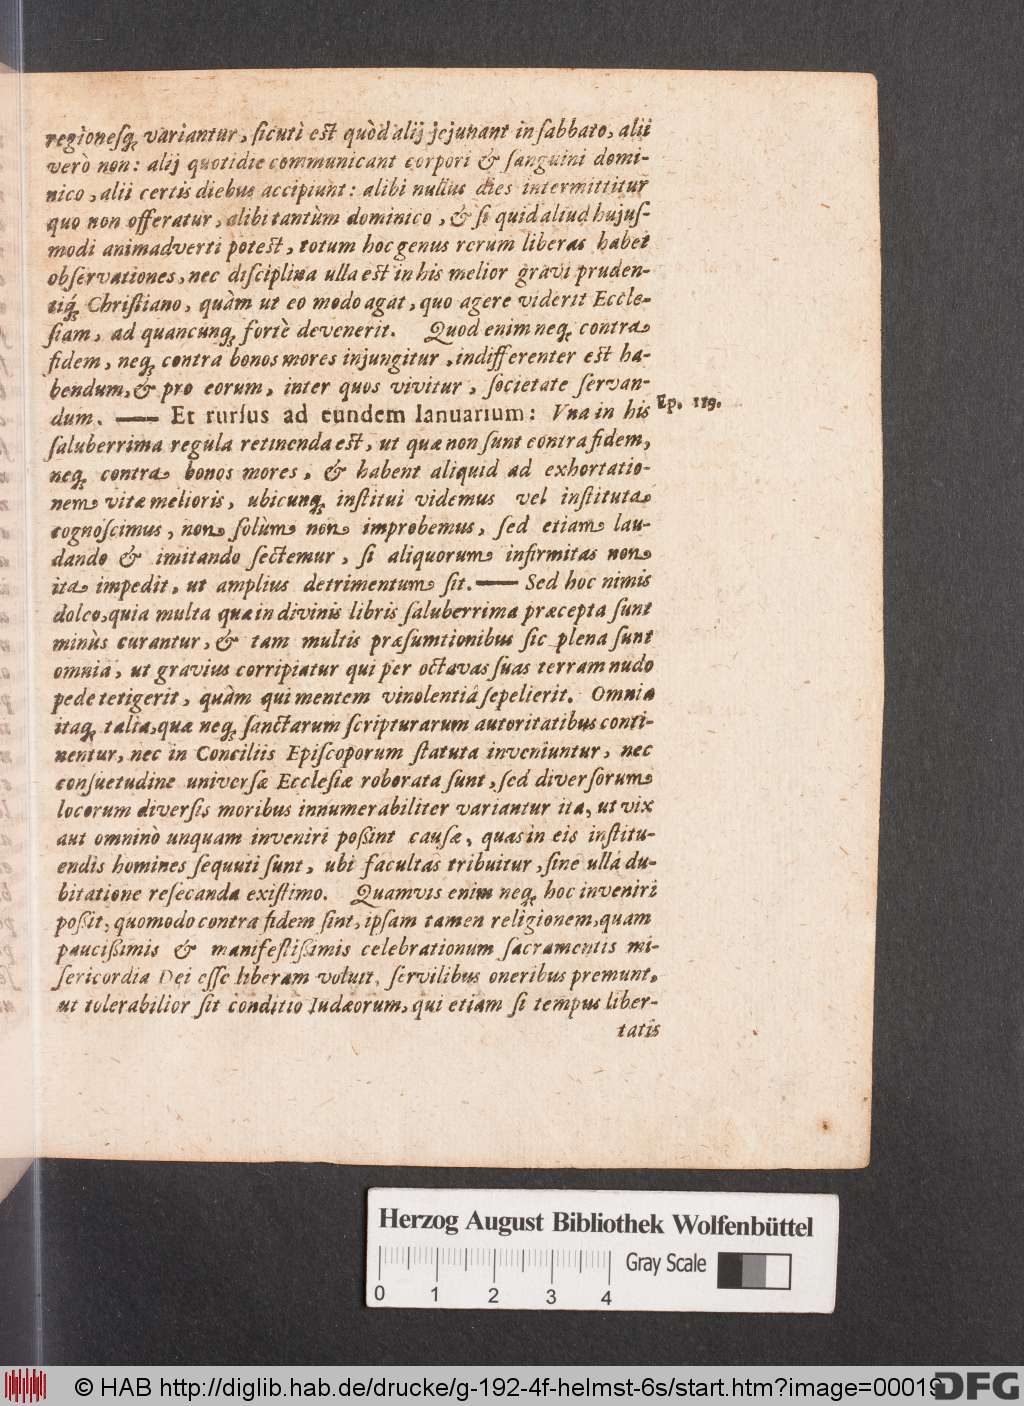 regionesq́; variantur, sicuti est quòd alij jejunant in sabbato, alii
verò non: alij quotidie communicant corpori & sanguini domi-
nico, alii certis diebus accipiunt: alibi nullus dies intermittitur
quo non offeratur, alibi tantùm dominico, & si quid aliud hujus-
modi animadverti potest, totum hoc genus rerum liberas habet
observationes, nec disciplina ulla est in his melior gravi pruden-
tiq́; Christiano, quàm ut eo modo agat, quo agere viderit Eccle-
siam, ad quancunq; fortè devenerit. Quod enim neq; contra
fidem, neq; contra bonos mores injungitur, indifferenter est ha-
bendum, & pro eorum, inter quos vivitur, societate servan-
dum. —— Et rursus ad eundem Ianuarium: Vna in his
Ep. 119.
saluberrima regula retinenda est, ut quæ non sunt contra fidem,
neq; contra bonos mores, & habent aliquid ad exhortatio-
nem vitæ melioris, ubicunq; institui videmus vel instituta
cognoscimus, non solùm non improbemus, sed etiam lau-
dando & imitando sectemur, si aliquorum infirmitas non
ita impedit, ut amplius detrimentum sit. —— Sed hoc nimis
doleo, quia multa quæ in divinis libris saluberrima præcepta sunt
minùs curantur, & tam multis præsumtionibus sic plena sunt
omnia, ut gravius corripiatur qui per octavas suas terram nudo
pede tetigerit, quàm qui mentem vinolentiâ sepelierit. Omnia
itaq; talia, quæ neq; sanctarum scripturarum autoritatibus conti-
nentur, nec in Conciliis Episcoporum statuta inveniuntur, nec
consuetudine universæ Ecclesiæ roborata sunt, sed diversorum
locorum diversis moribus innumerabiliter variantur ita, ut vix
aut omninò unquam inveniri possint causæ, quas in eis institu-
endis homines sequuti sunt, ubi facultas tribuitur, sine ullâ du-
bitatione resecanda existimo. Quamvis enim neq; hoc inveniri
possit, quomodo contra fidem sint, ipsam tamen religionem, quam
paucissimis & manifestissimis celebrationum sacramentis mi-
sericordia Dei esse liberam voluit, servilibus oneribus premunt,
ut tolerabilior sit conditio Iudæorum, qui etiam si tempus liber-
tatis
Herzog August Bibliothek Wolfenbüttel
Gray Scale
0 1 2 3 4
© HAB http://diglib.hab.de/drucke/g-192-4f-helmst-6s/start.htm?image=00019
DFG